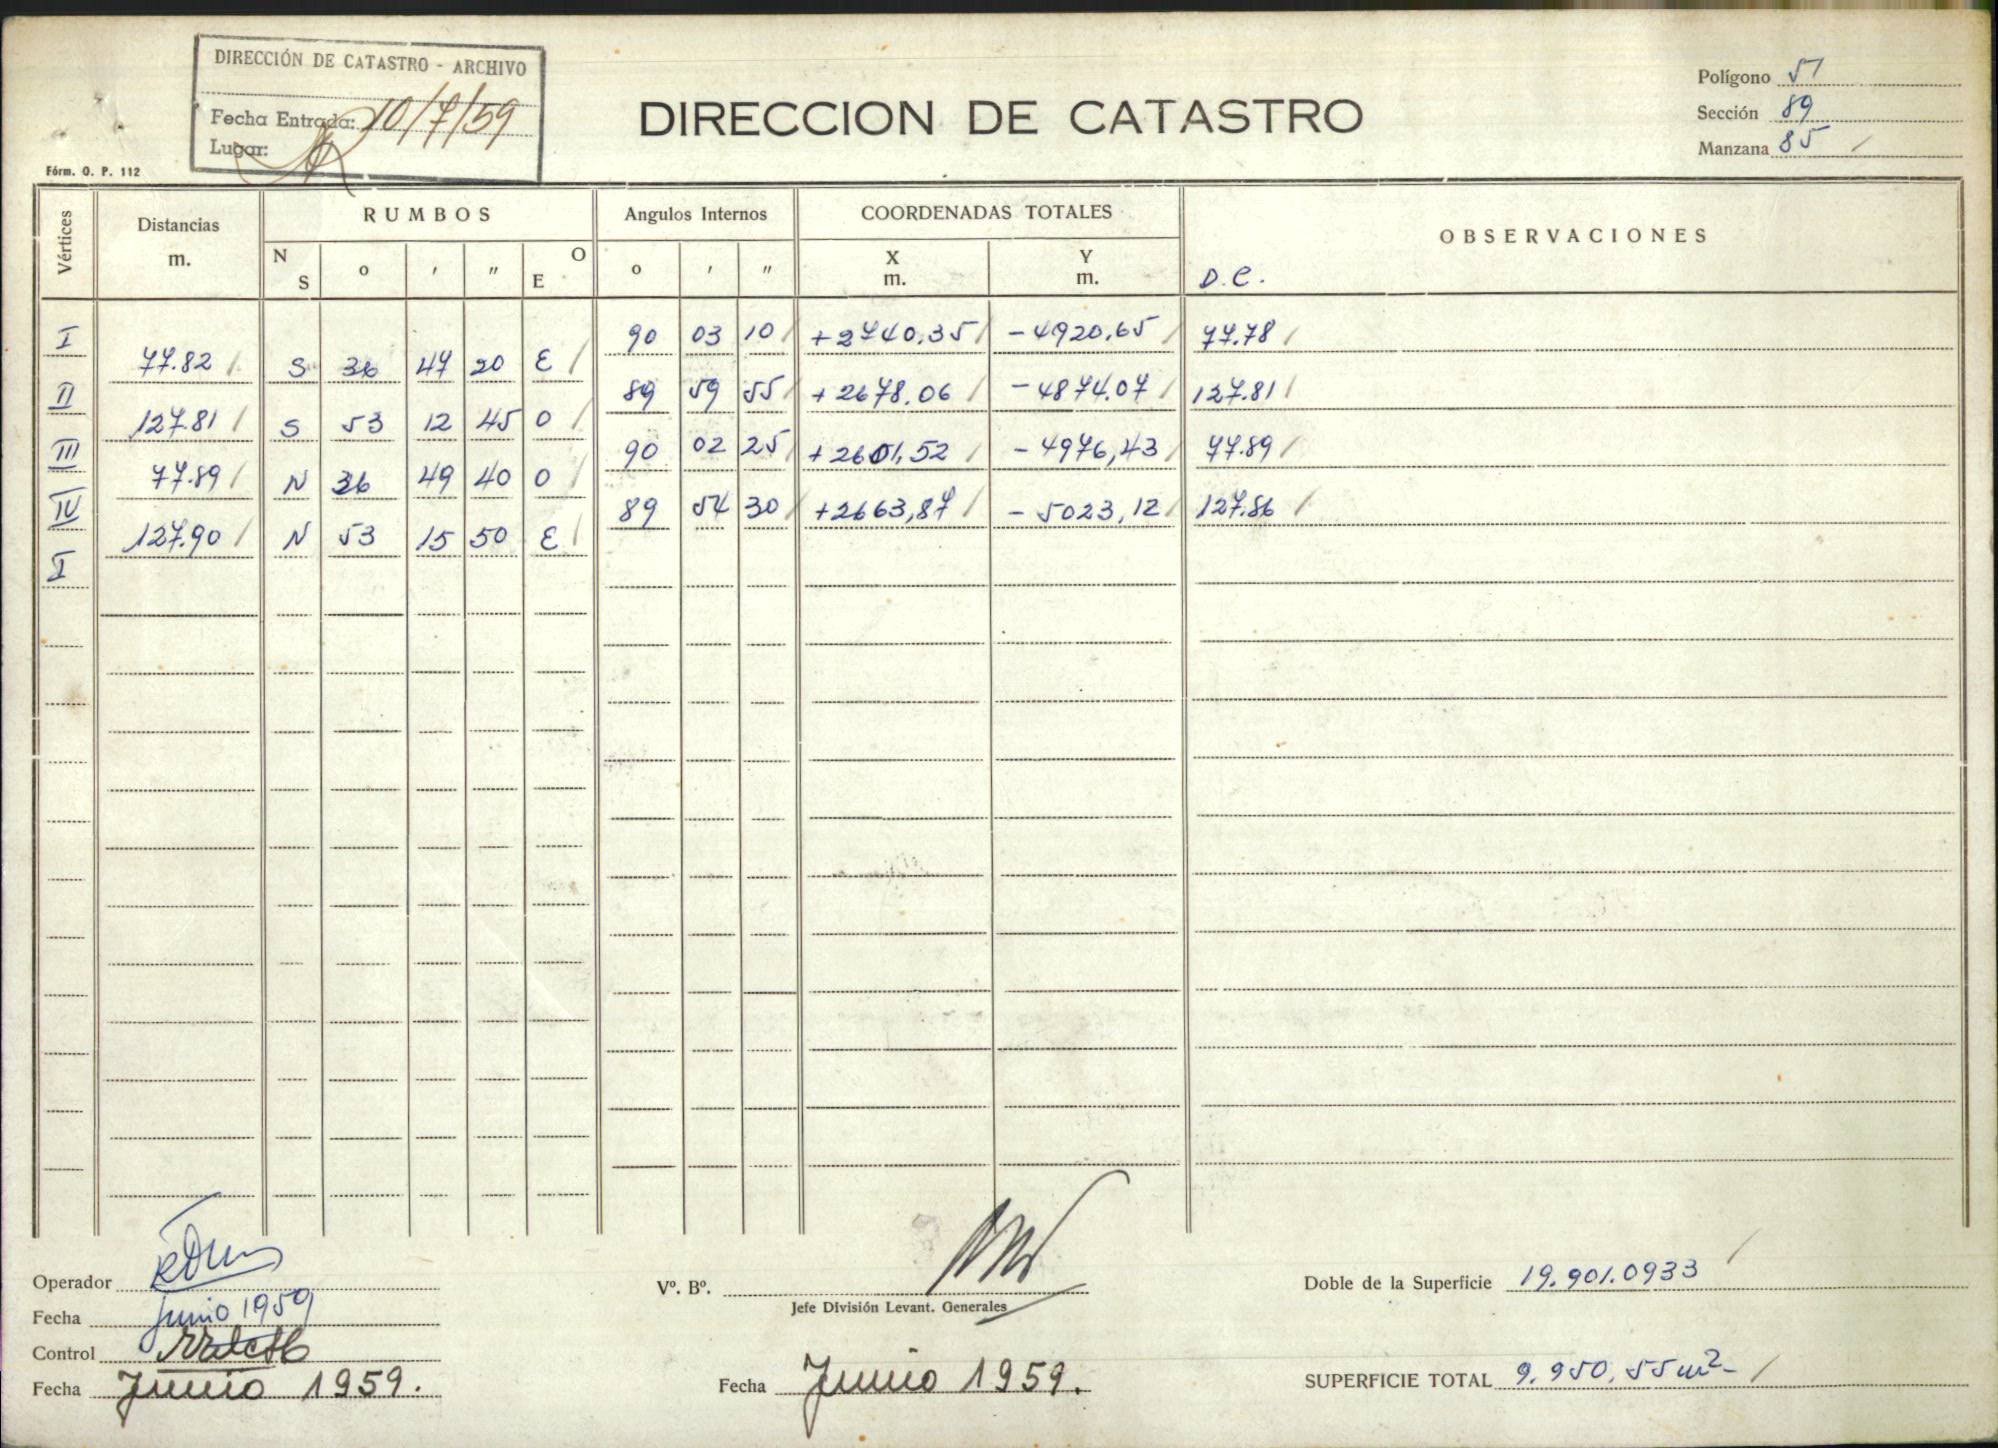 DIRECCIÓN DE CATASTRO - ARCHIVO
Fecha Entrada: 10/7/59
Lugar:
DIRECCION DE CATASTRO
Polígono 51
Sección 89
Manzana 85
Fórm. O. P. 112
Vértices Distancias m. RUMBOS Angulos Internos COORDENADAS TOTALES OBSERVACIONES
N S o ′ ″ O E o ′ ″ X m. Y m. D.C.
I 90 03 10 +2740,35 -4920,65 77.78
77.82 S 36 47 20 E
II 89 59 55 +2678,06 -4874,07 127.81
127.81 S 53 12 45 O
III 90 02 25 +2601,52 -4976,43 77.89
77.89 N 36 49 40 O
IV 89 54 30 +2663,87 -5023,12 127.86
127.90 N 53 15 50 E
I
Operador
Fecha Junio 1959
Control
Fecha Junio 1959.
Vº. Bº.
Jefe División Levant. Generales
Fecha Junio 1959.
Doble de la Superficie 19.901.0933
SUPERFICIE TOTAL 9.950,55 m²-